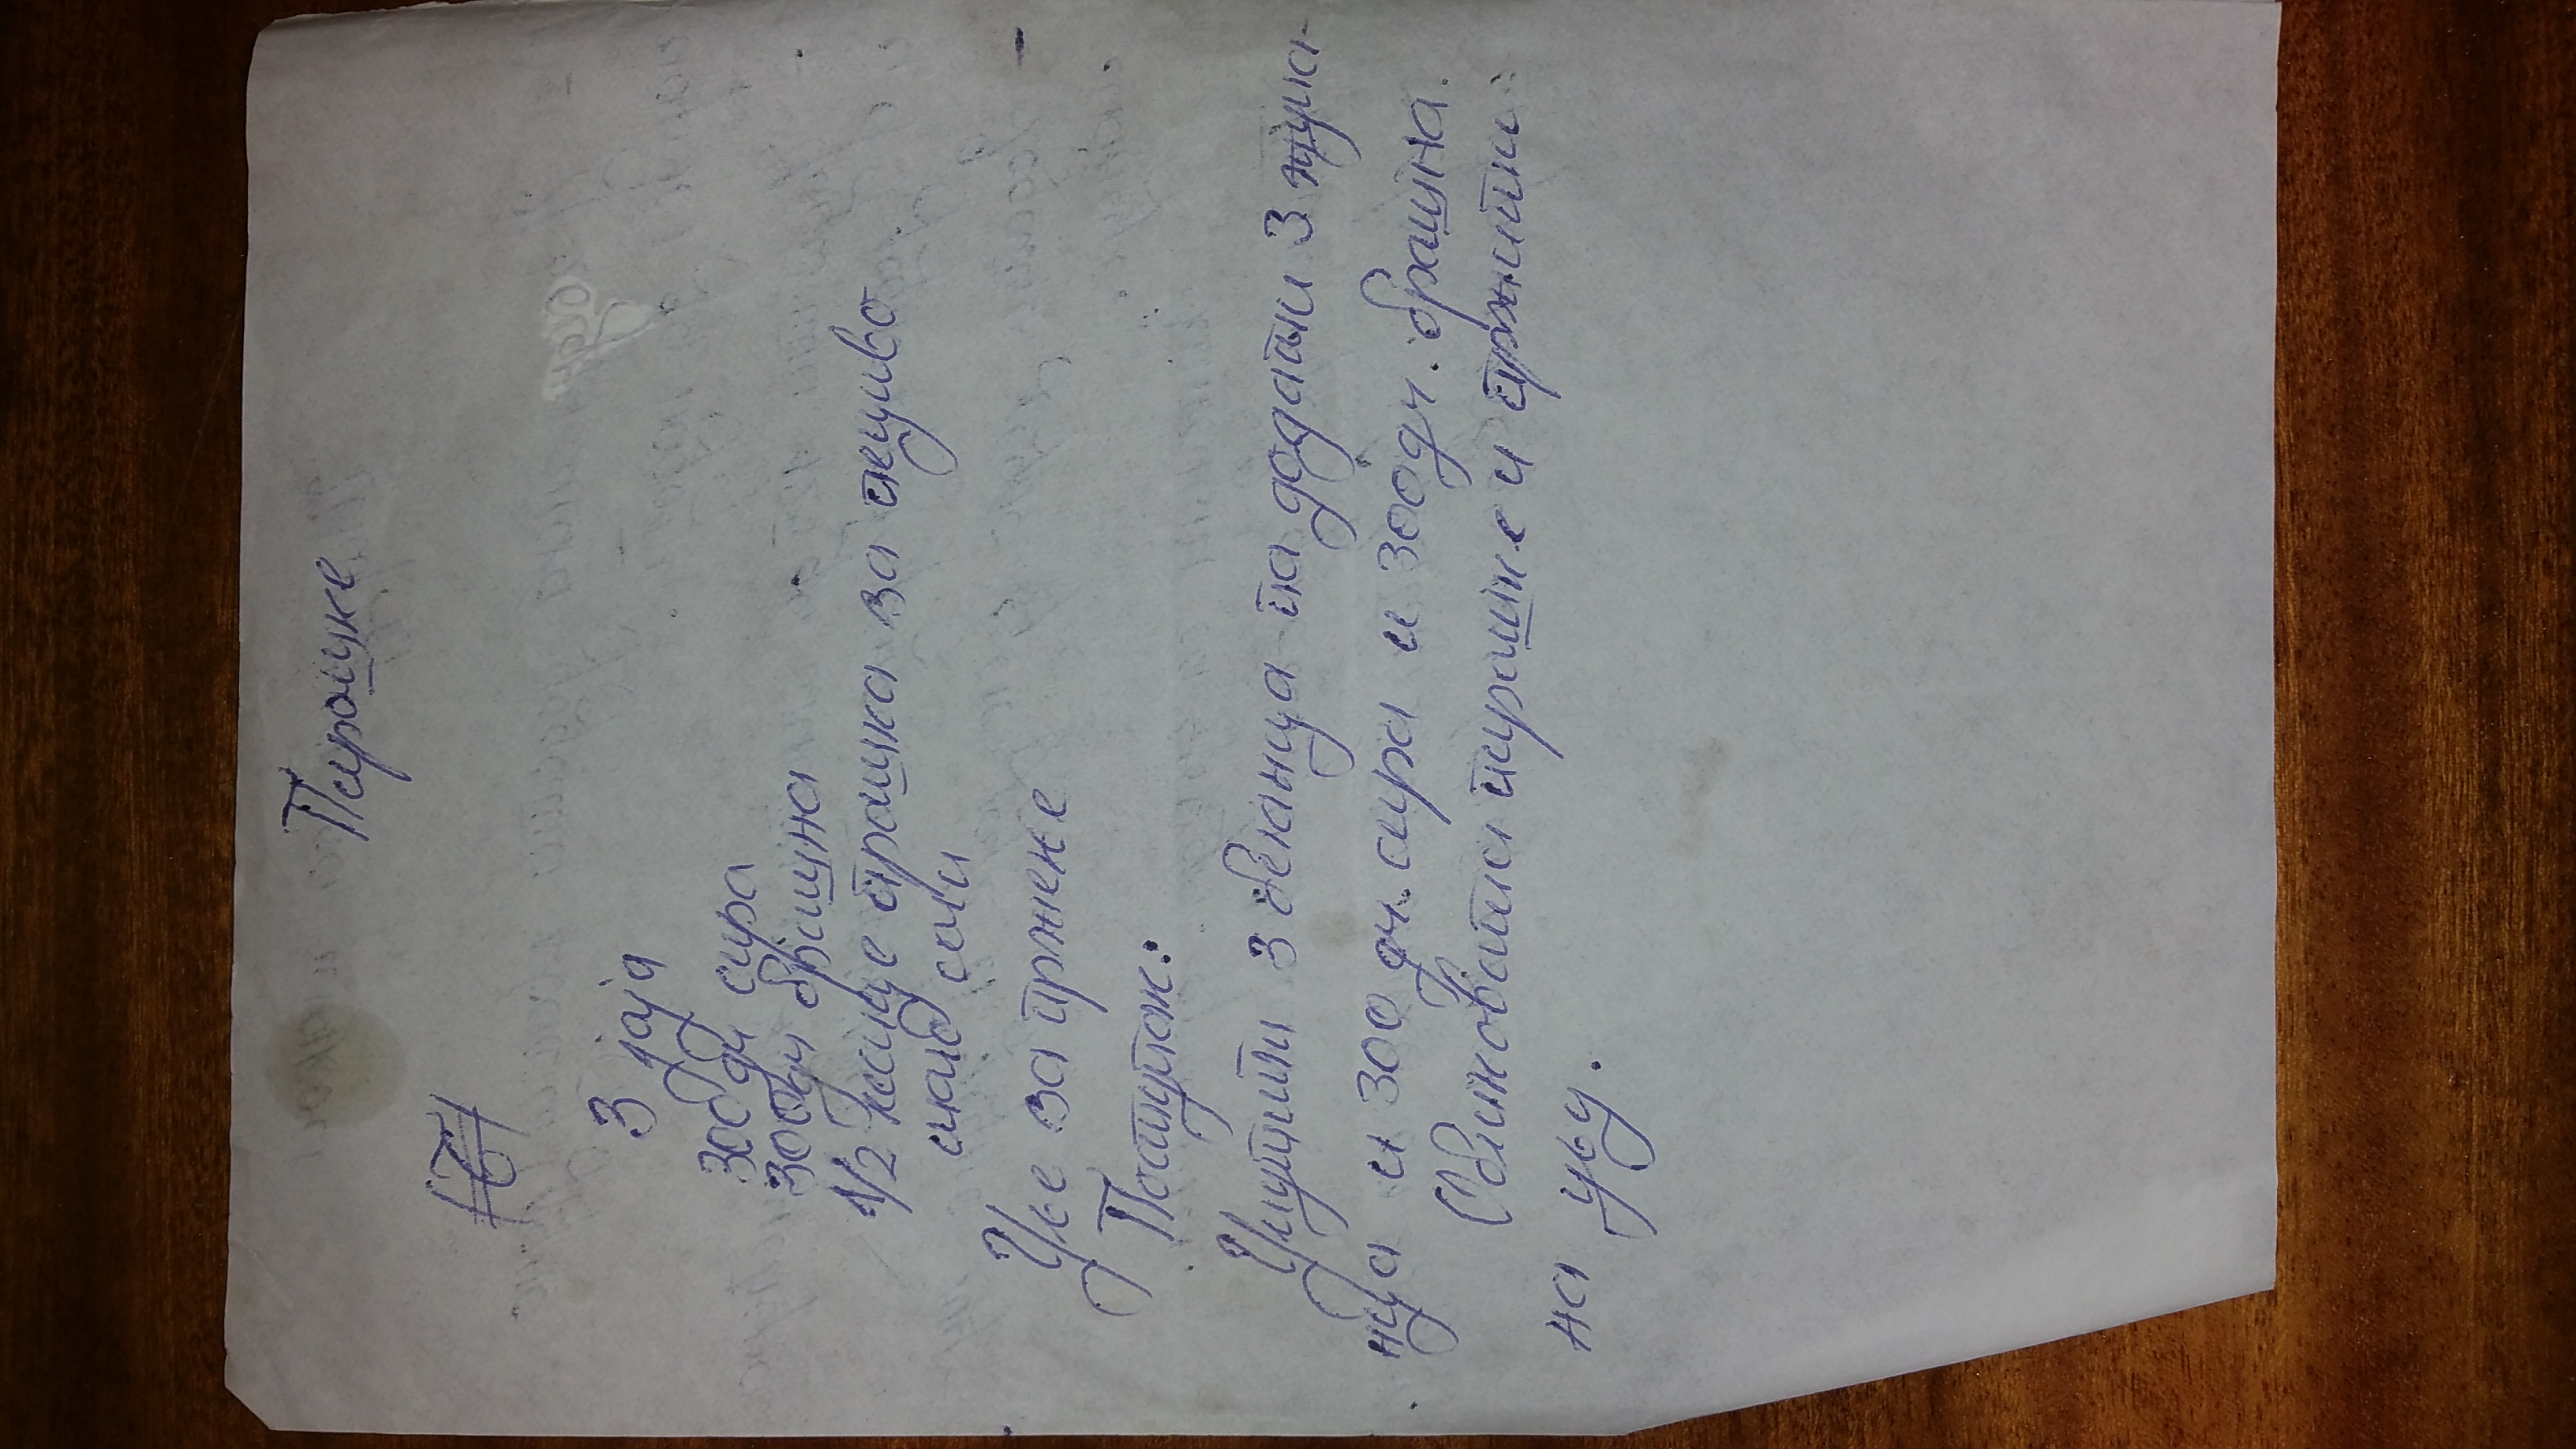 Пирошке
3 јаја
300 гр сира
300 гр брашна
1/2 кесице прашка за пециво
мало соли
Уље за пржење
Поступак:
Умутити 3 беланца па додати 3 жума-
нца и 300 гр. сира и 300 гр. брашна.
Обликовати пирошке и пржити
на уљу.